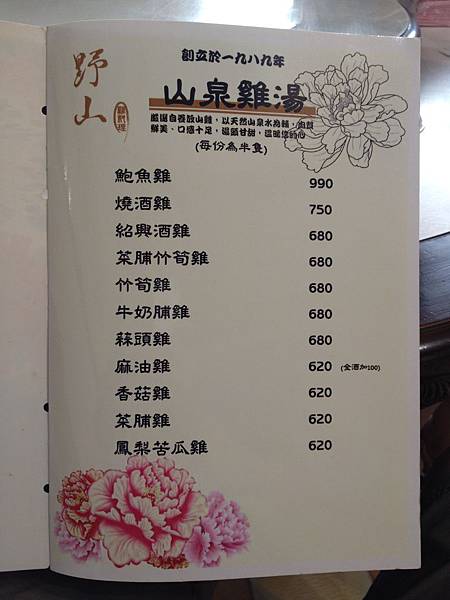 野山
創立於一九八九年
山泉雞湯
嚴選自養放山雞，以天然山泉水為輔，肉質
鮮美、口感十足，湯頭甘甜，溫暖您的心
(每份為半隻)
鮑魚雞 990
燒酒雞 750
紹興酒雞 680
菜脯竹荀雞 680
竹荀雞 680
牛奶脯雞 680
蒜頭雞 680
麻油雞 620 (全酒加100)
香菇雞 620
菜脯雞 620
鳳梨苦瓜雞 620